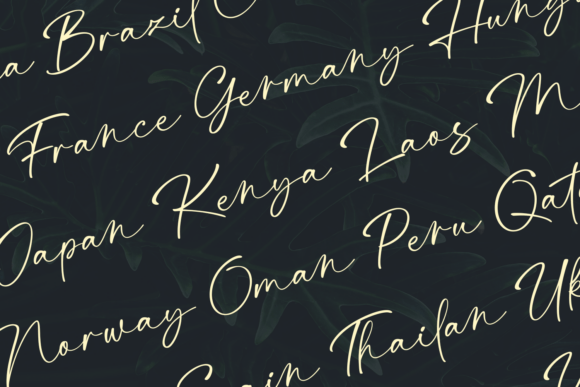 a Brazil C
France Germany Hung
Japan Kenya Laos M
Norway Oman Peru Qat
Spain Thailan Uk